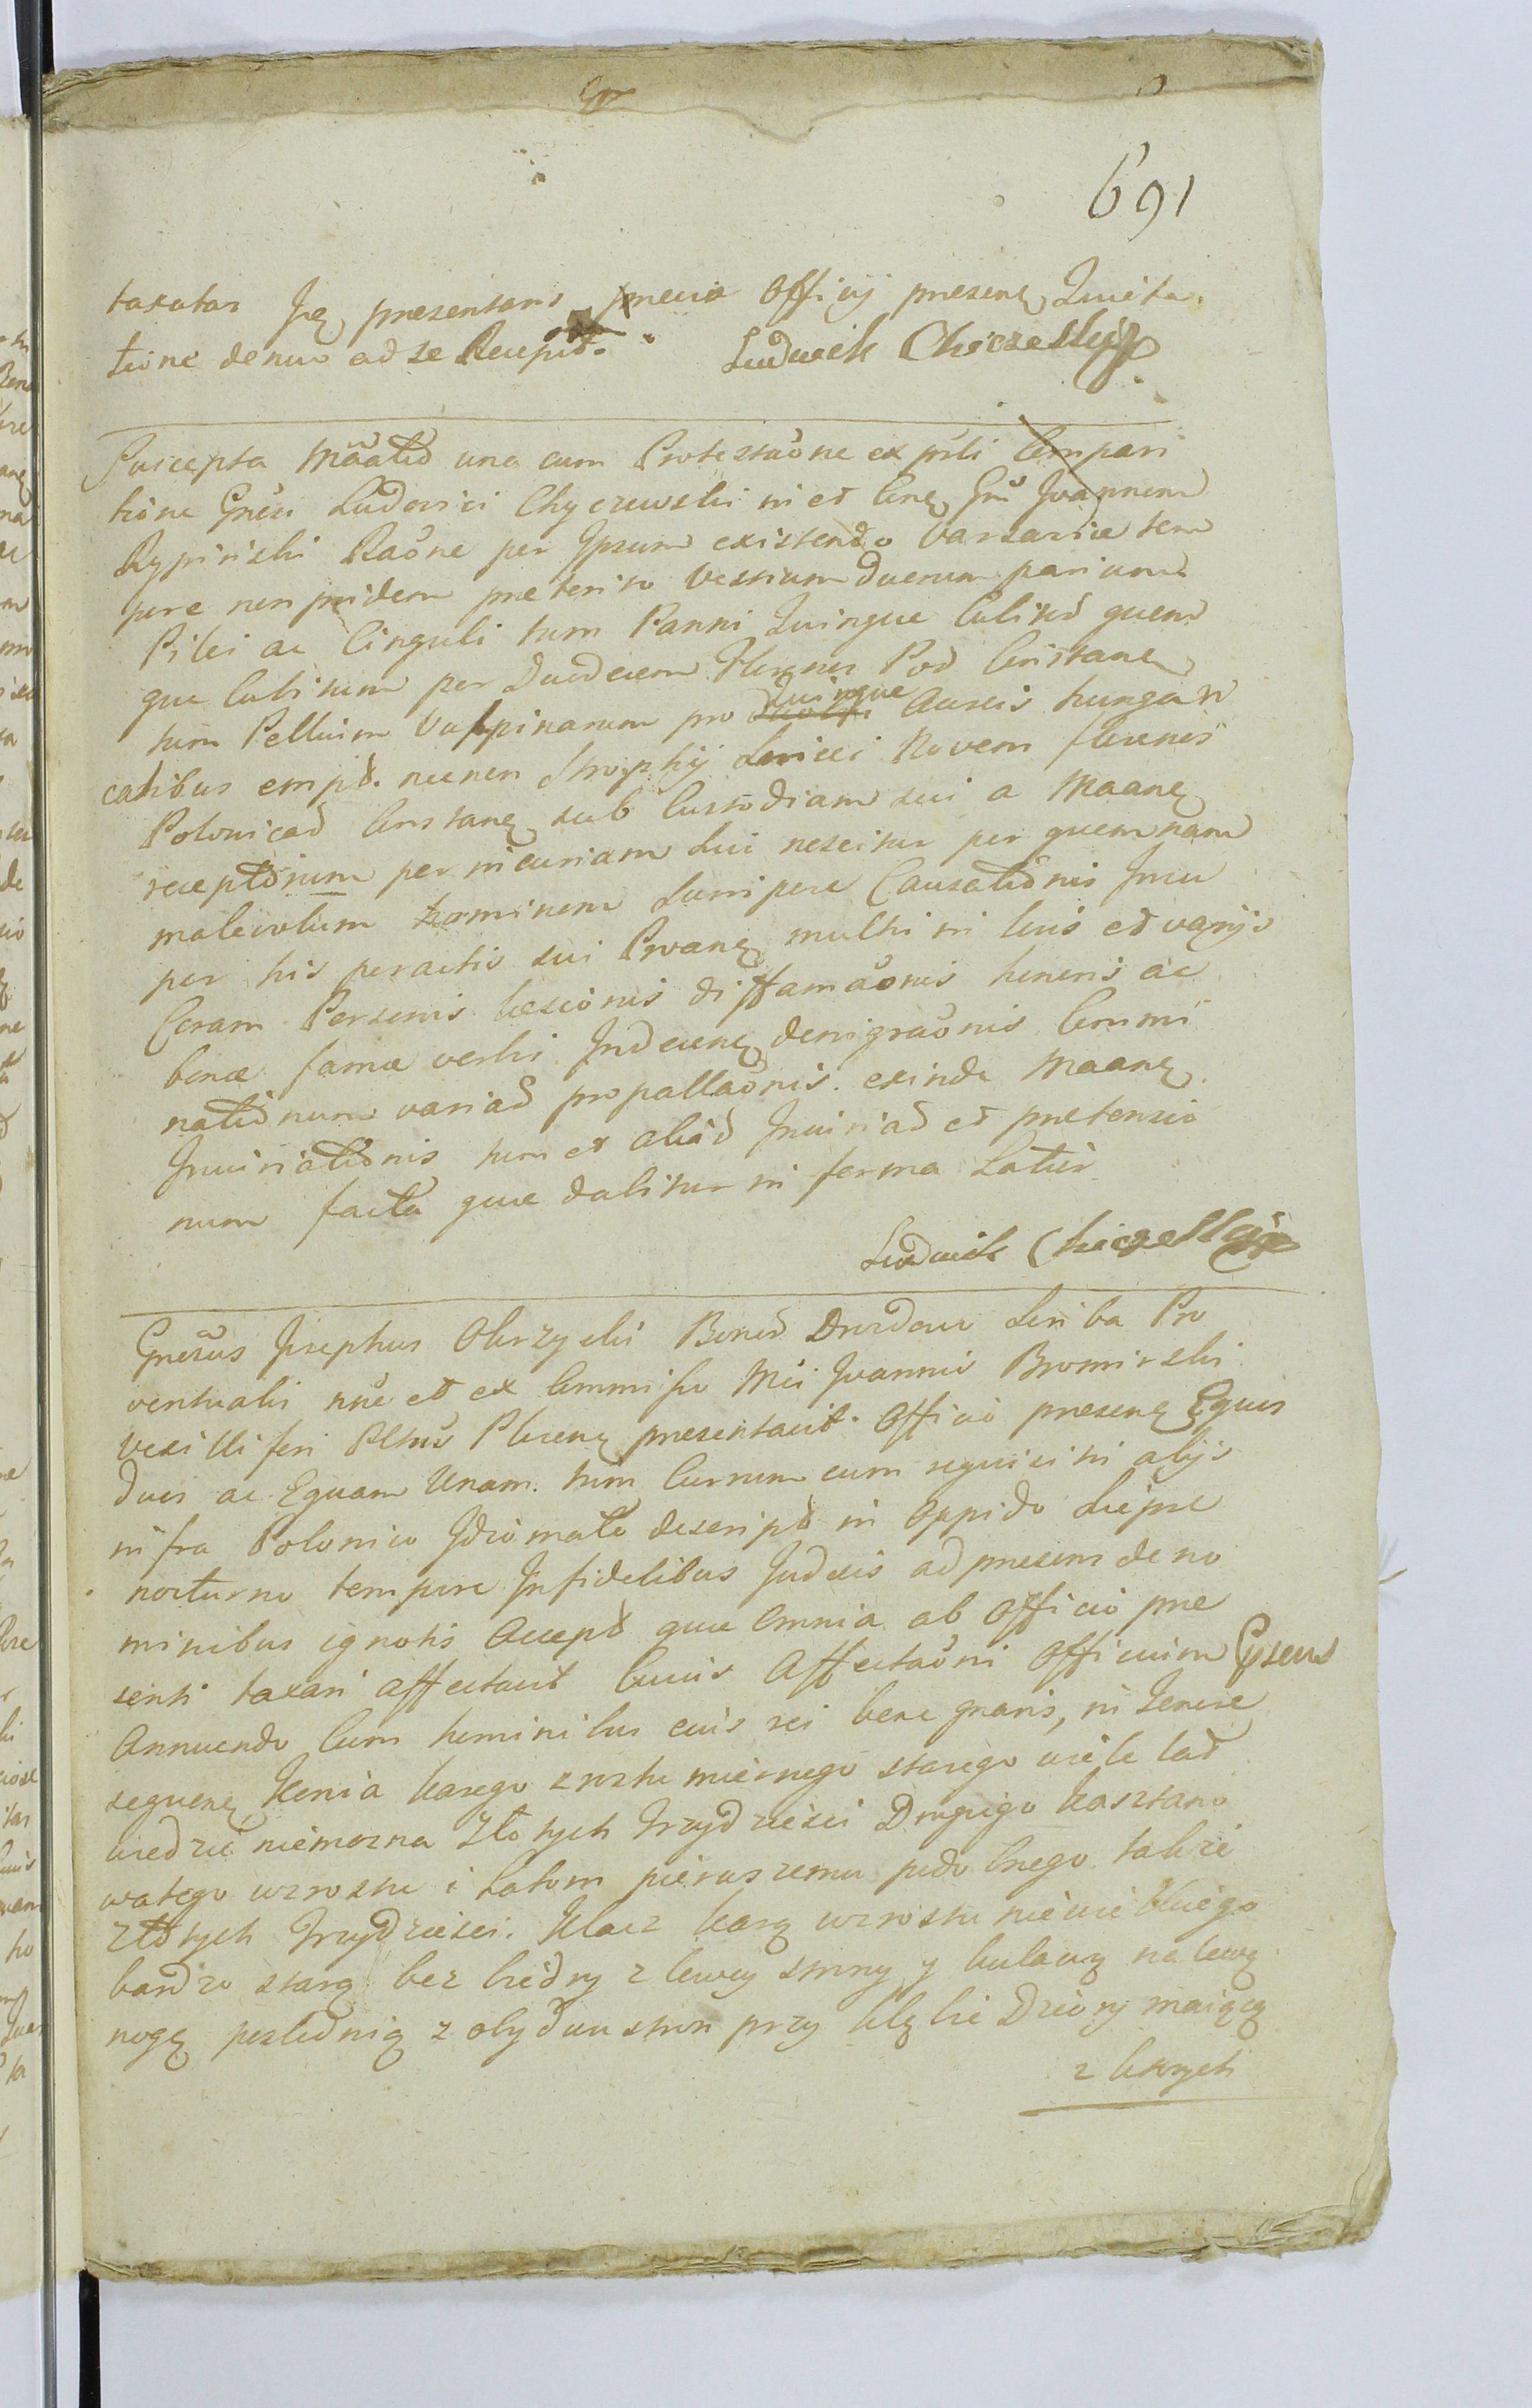 691
taxatas Je presentans previa Officij presene Quieta
tione denuo ad se Recepit. Ludwik Chiczeski
Suscepta Maate una cum Protestaone ex psli Compari
tione Gnesi Ludovici Chyczewski in et Cone Gnu Joannem
Rypinski Raone per Ipsum existendo Varsavie tem
pore non pridem preterito Vestium duarum parium
Pilei ac Cinguli tum Panni Quinque Cubitus quem
que Cubitum per Duodecem Florenos Pol Constane
tum Pellium Vulpinarum pro Quinque Aureis hungari
calibus empt. necnon Strophij Serici Novem florenis
Polonicad Constane sub Custodiam sui a Maane
receptorum per incuriam sui nescitur per quemnam
malevolum hominem surripere Causationis Insu
per his peractis sui Proane multi in locis et varijs
Coram Personis laesionis diffamaonis honoris ac
bonae famae verbi Indecene denigraonis Commi
nationum variad propallaonis. exinde Maane
Injuriationis tum et aliad Injuriad et pretensio
num facta quae dabitur in forma Latiori
Ludwik Chiczeski
Gnesus Josephus Obrzycki Bonod Drozdowo Scriba Pro
ventualis nne et ex Commisso Mci Joannis Bromirski
Vexilliferi Pltus Plocene presentavit Officio presene Equos
duos ac Equam Unam. tum Currum cum requisitis alijs
infra Polonico Idiomate descript in Oppido Sieprc
nocturno tempore Infidelibus Judeis ad presens de no
minibus ignotis Accept quae Omnia ab Officio pre
senti taxari affectavit Cuius Affectaoni Officium Gpsens
Annuendo Cum hominibus eius rei bene gnaris, in Tenore
sequene Konia karego wzrostu miernego starego wiele lat
wiedzieć niemozna Złotych Trzydziesci Drugiego kasztano
watego wzrostu i Latom pierwszemu podobnego. takze
Złotych Trzydziesci. Klacz karą wzrostu niewielkiego
bardzo starą bez biedry z lewey strony y kulawą na lewą
nogę poslednią z obydwu stron przy kłębie Dziory maiącą
z ktorych